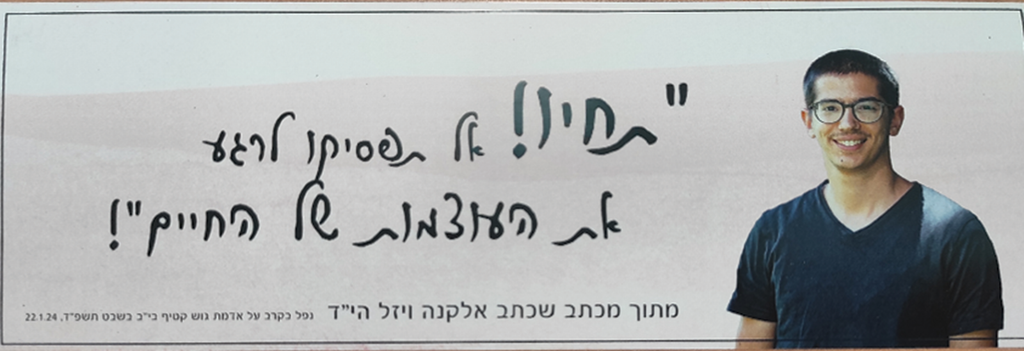 "תחיו! אל תפסיקו לרגע
את העוצמות של החיים"!
מתוך מכתב שכתב אלקנה ויזל הי"ד נפל בקרב על אדמת גוש קטיף בי"ב בשבט תשפ"ד, 22.1.24